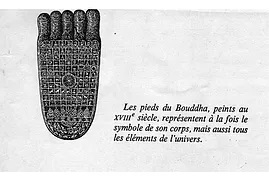 Les pieds du Bouddha, peints au
XVIIIe siècle, représentent à la fois le
symbole de son corps, mais aussi tous
les éléments de l'univers.